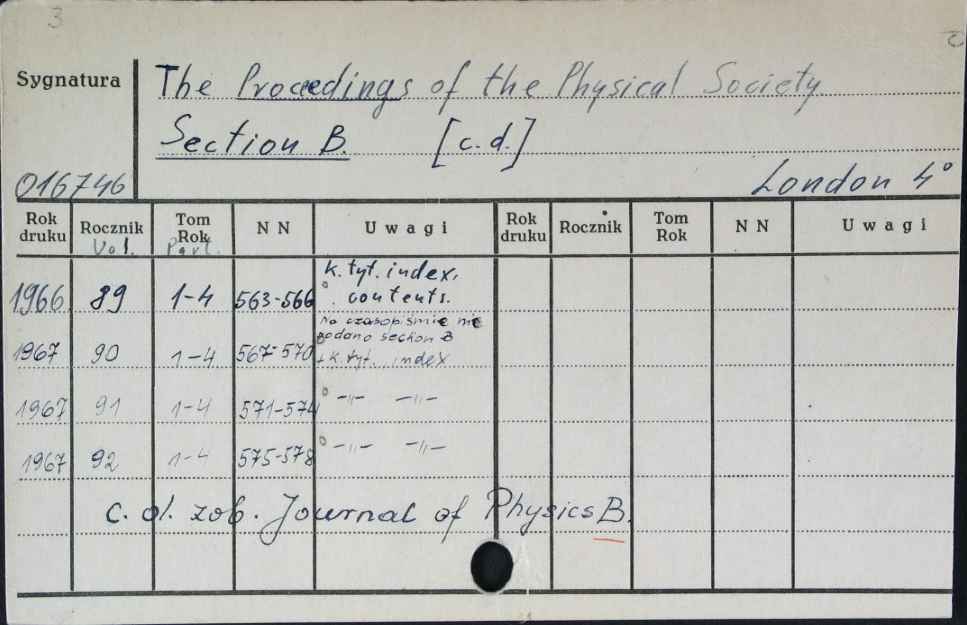 3
Sygnatura
The Proceedings of the Physical Society
Section B. [c.d.]
016746
London 4°
Rok druku Rocznik Vol. Tom Rok Part. N N Uwagi Rok druku Rocznik Tom Rok N N Uwagi
1966 89 1-4 563-566 k.tyt. index, contents.
Na czasopiśmie nie podano section B
1967 90 1-4 567-570 + k.tyt., index
1967 91 1-4 571-574 -"- -"-
1967 92 1-4 575-578 -"- -"-
c. d. zob. Journal of Physics B.